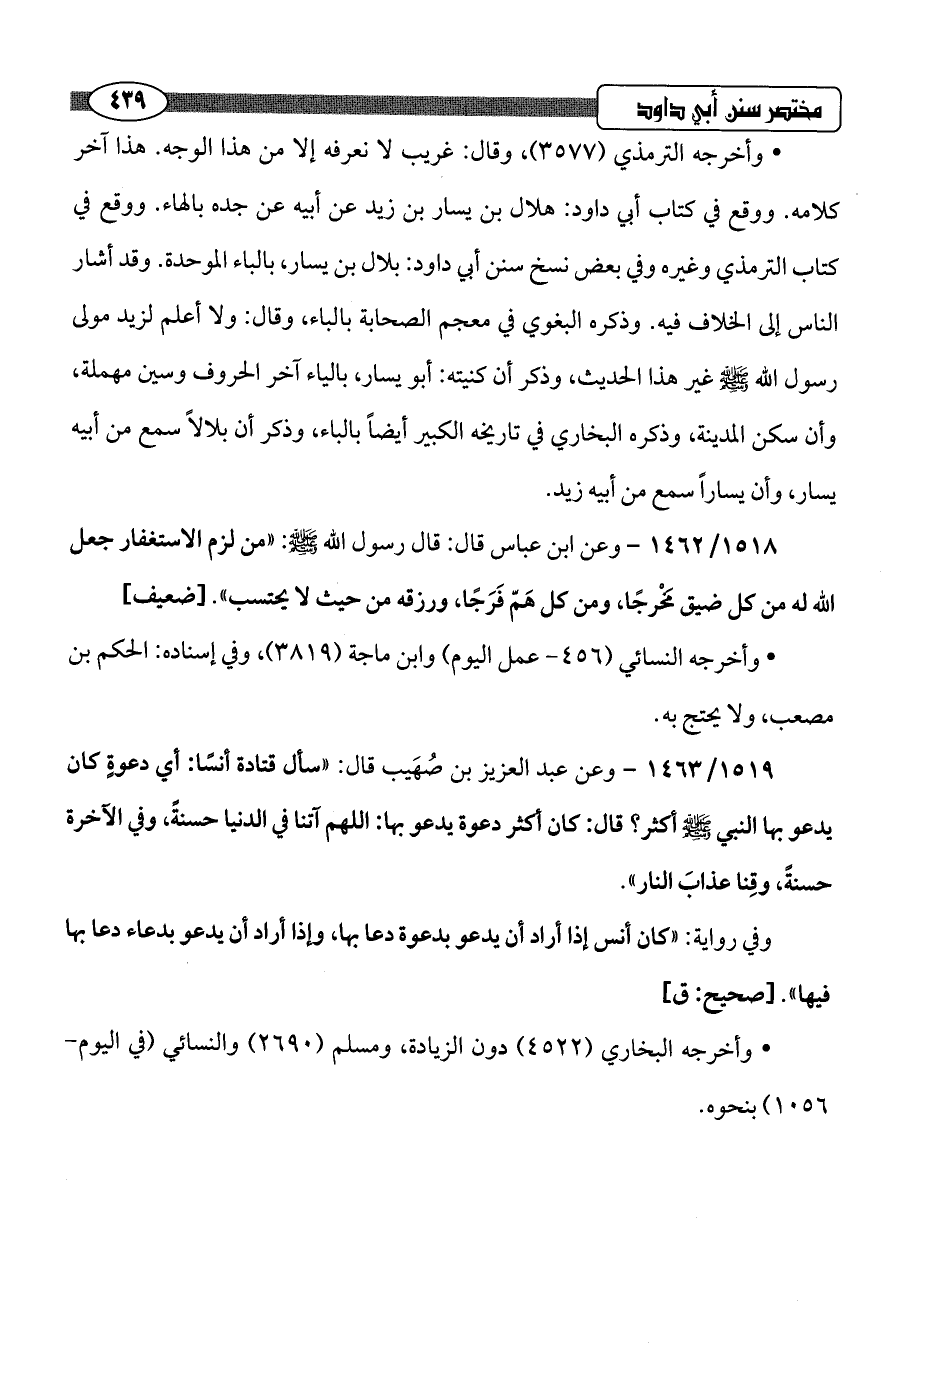 مختصر سنن أبي داود
٤٣٩
• وأخرجه الترمذي (٣٥٧٧)، وقال: غريب لا نعرفه إلا من هذا الوجه. هذا آخر
كلامه. ووقع في كتاب أبي داود: هلال بن يسار بن زيد عن أبيه عن جده بالهاء. ووقع في
كتاب الترمذي وغيره وفي بعض نسخ سنن أبي داود: بلال بن يسار، بالباء الموحدة. وقد أشار
الناس إلى الخلاف فيه. وذكره البغوي في معجم الصحابة بالباء، وقال: ولا أعلم لزيد مولى
رسول الله ﷺ غير هذا الحديث، وذكر أن كنيته: أبو يسار، بالياء آخر الحروف وسين مهملة،
وأن سكن المدينة، وذكره البخاري في تاريخه الكبير أيضاً بالباء، وذكر أن بلالاً سمع من أبيه
يسار، وأن يساراً سمع من أبيه زيد.
١٤٦٢/١٥١٨ – وعن ابن عباس قال: قال رسول الله ﷺ: «من لزم الاستغفار جعل
الله له من كل ضيق مَخْرجًا، ومن كل هَمّ فَرَجًا، ورزقه من حيث لا يحتسب». [ضعيف]
• وأخرجه النسائي (٤٥٦- عمل اليوم) وابن ماجة (٣٨١٩)، وفي إسناده: الحكم بن
مصعب، ولا يحتج به.
١٤٦٣/١٥١٩ – وعن عبد العزيز بن صُهَيب قال: «سأل قتادة أنسًا: أي دعوةٍ كان
يدعو بها النبي ﷺ أكثر؟ قال: كان أكثر دعوة يدعو بها: اللهم آتنا في الدنيا حسنةً، وفي الآخرة
حسنةً، وقِنا عذابَ النار».
وفي رواية: «كان أنس إذا أراد أن يدعو بدعوة دعا بها، وإذا أراد أن يدعو بدعاء دعا بها
فيها». [صحيح: ق]
• وأخرجه البخاري (٤٥٢٢) دون الزيادة، ومسلم (٢٦٩٠) والنسائي (في اليوم-
١٠٥٦) بنحوه.